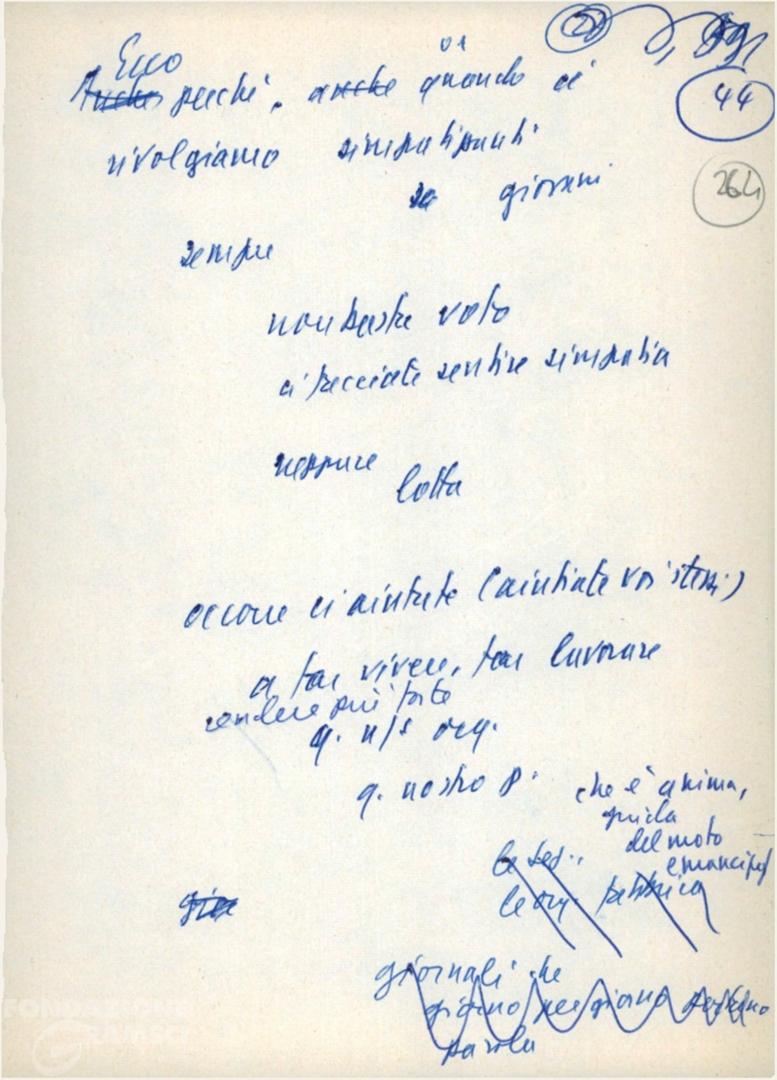 Ecco
Anche perché, anche quando ci
44
rivolgiamo simpatizzanti
264
giovani
sempre
non basta voto
ci facciate sentire simpatia
neppure
lotta
occorre ci aiutate (aiutiate voi stessi)
a far vivere, far lavorare
rendere più forte
q. n/s org.
q. nostro P. che è anima,
guida
del moto
emancip
le sez..
le org. fabbrica
giornali che
giorno per giorno portano
parola
FONDAZIONE
GRAMSCI